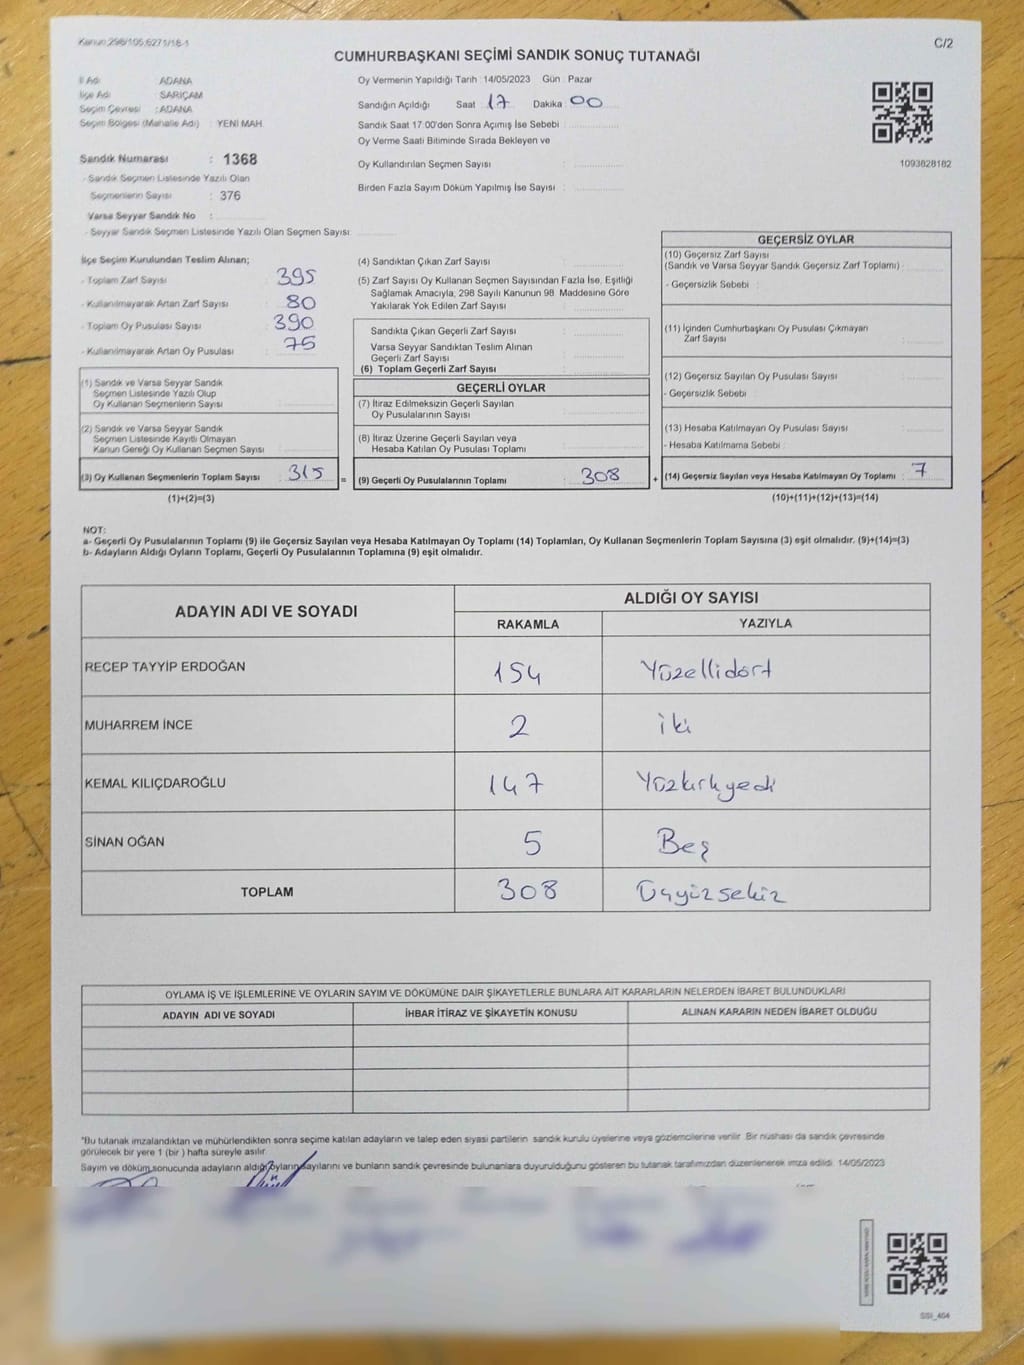 Kanun:298/105;6271/18-1
C/2
CUMHURBAŞKANI SEÇİMİ SANDIK SONUÇ TUTANAĞI
İl Adı : ADANA
İlçe Adı : SARIÇAM
Seçim Çevresi : ADANA
Seçim Bölgesi (Mahalle Adı) : YENİ MAH.
Sandık Numarası : 1368
- Sandık Seçmen Listesinde Yazılı Olan
Seçmenlerin Sayısı : 376
Varsa Seyyar Sandık No :
- Seyyar Sandık Seçmen Listesinde Yazılı Olan Seçmen Sayısı:
Oy Vermenin Yapıldığı Tarih : 14/05/2023 Gün : Pazar
Sandığın Açıldığı Saat : 17 Dakika : 00
Sandık Saat 17:00'den Sonra Açımış İse Sebebi :
Oy Verme Saati Bitiminde Sırada Bekleyen ve
Oy Kullandırılan Seçmen Sayısı :
Birden Fazla Sayım Döküm Yapılmış İse Sayısı :
1093828182
İlçe Seçim Kurulundan Teslim Alınan;
- Toplam Zarf Sayısı : 395
- Kullanılmayarak Artan Zarf Sayısı : 80
- Toplam Oy Pusulası Sayısı : 390
- Kullanılmayarak Artan Oy Pusulası : 75
(1) Sandık ve Varsa Seyyar Sandık
Seçmen Listesinde Yazılı Olup
Oy Kullanan Seçmenlerin Sayısı :
(2) Sandık ve Varsa Seyyar Sandık
Seçmen Listesinde Kayıtlı Olmayan
Kanun Gereği Oy Kullanan Seçmen Sayısı :
(3) Oy Kullanan Seçmenlerin Toplam Sayısı : 315
(1)+(2)=(3)
=
(4) Sandıktan Çıkan Zarf Sayısı :
(5) Zarf Sayısı Oy Kullanan Seçmen Sayısından Fazla İse, Eşitliği
Sağlamak Amacıyla, 298 Sayılı Kanunun 98. Maddesine Göre
Yakılarak Yok Edilen Zarf Sayısı :
Sandıkta Çıkan Geçerli Zarf Sayısı :
Varsa Seyyar Sandıktan Teslim Alınan
Geçerli Zarf Sayısı :
(6) Toplam Geçerli Zarf Sayısı :
GEÇERLİ OYLAR
(7) İtiraz Edilmeksizin Geçerli Sayılan
Oy Pusulalarının Sayısı :
(8) İtiraz Üzerine Geçerli Sayılan veya
Hesaba Katılan Oy Pusulası Toplamı :
(9) Geçerli Oy Pusulalarının Toplamı : 308
+
GEÇERSİZ OYLAR
(10) Geçersiz Zarf Sayısı
(Sandık ve Varsa Seyyar Sandık Geçersiz Zarf Toplamı) :
- Geçersizlik Sebebi :
(11) İçinden Cumhurbaşkanı Oy Pusulası Çıkmayan
Zarf Sayısı :
(12) Geçersiz Sayılan Oy Pusulası Sayısı :
- Geçersizlik Sebebi :
(13) Hesaba Katılmayan Oy Pusulası Sayısı :
- Hesaba Katılmama Sebebi :
(14) Geçersiz Sayılan veya Hesaba Katılmayan Oy Toplamı : 7
(10)+(11)+(12)+(13)=(14)
NOT:
a- Geçerli Oy Pusulalarının Toplamı (9) ile Geçersiz Sayılan veya Hesaba Katılmayan Oy Toplamı (14) Toplamları, Oy Kullanan Seçmenlerin Toplam Sayısına (3) eşit olmalıdır. (9)+(14)=(3)
b- Adayların Aldığı Oyların Toplamı, Geçerli Oy Pusulalarının Toplamına (9) eşit olmalıdır.
ADAYIN ADI VE SOYADI
ALDIĞI OY SAYISI
RAKAMLA YAZIYLA
RECEP TAYYİP ERDOĞAN 154 Yüzellidört
MUHARREM İNCE 2 iki
KEMAL KILIÇDAROĞLU 147 Yüzkırkyedi
SİNAN OĞAN 5 Beş
TOPLAM 308 Üçyüzsekiz
OYLAMA İŞ VE İŞLEMLERİNE VE OYLARIN SAYIM VE DÖKÜMÜNE DAİR ŞİKAYETLERLE BUNLARA AİT KARARLARIN NELERDEN İBARET BULUNDUKLARI
ADAYIN ADI VE SOYADI İHBAR İTİRAZ VE ŞİKAYETİN KONUSU ALINAN KARARIN NEDEN İBARET OLDUĞU
*Bu tutanak imzalandıktan ve mühürlendikten sonra seçime katılan adayların ve talep eden siyasi partilerin sandık kurulu üyelerine veya gözlemcilerine verilir. Bir nüshası da sandık çevresinde
görülecek bir yere 1 (bir ) hafta süreyle asılır.
Sayım ve döküm sonucunda adayların aldığı oyların sayılarını ve bunların sandık çevresinde bulunanlara duyurulduğunu gösteren bu tutanak tarafımızdan düzenlenerek imza edildi. 14/05/2023
SSI_404